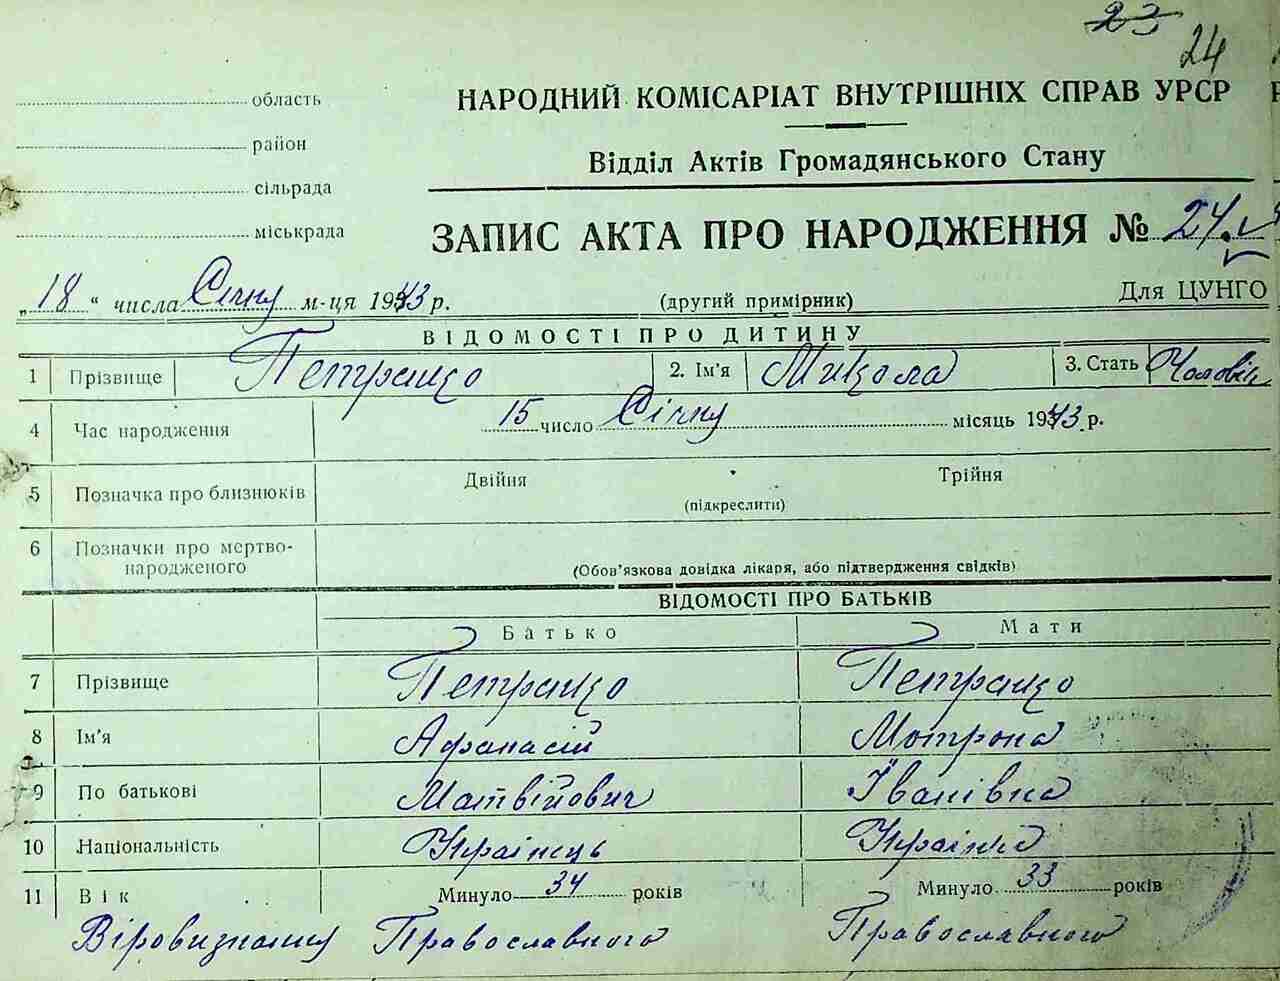 23
24
область
НАРОДНИЙ КОМІСАРІАТ ВНУТРІШНІХ СПРАВ УРСР
район
Відділ Актів Громадянського Стану
сільрада
міськрада
ЗАПИС АКТА ПРО НАРОДЖЕННЯ № 24.
„18“ числа Січну м-ця 1943 р.
(другий примірник)
Для ЦУНГО
ВІДОМОСТІ ПРО ДИТИНУ
1 Прізвище Петранко 2. Ім'я Микола 3. Стать Чоловік
4 Час народження 15 число Січну місяць 1943 р.
5 Позначка про близнюків Двійня Трійня
(підкреслити)
6 Позначки про мертво-
народженого
(Обов'язкова довідка лікаря, або підтвердження свідків)
ВІДОМОСТІ ПРО БАТЬКІВ
Батько Мати
7 Прізвище Петранко Петранко
8 Ім'я Афанасій Мотрона
9 По батькові Матвійович Іванівна
10 Національність Українець Українка
11 Вік Минуло 34 років Минуло 33 років
Віровизнання Православного Православного